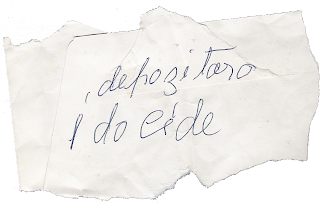 , depozitaro
l do Céde